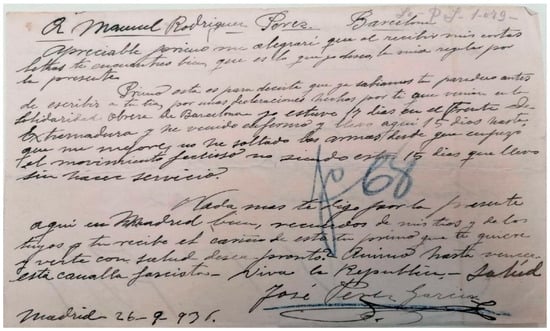 A Manuel Rodriguez Perez Barcelona
Apreciable primo me alegraré que al recibir mis cortas
letras te encuentres bien, que es lo que yo deseo, la mia regular por
la presente.
Primo esta es para decirte que ya sabiamos tu paradero antes
de escribir a tu tia, por unas declaraciones hechas por ti que venian en la
Solidaridad Obrera de Barcelona yo estuve 17 dias en el frente de
Extremadura y he venido enfermo y llevo aqui 15 dias hasta
que me mejore, no he soltado las armas desde que empezó
el movimiento faccioso no siendo estos 15 dias que llevo
sin hacer servicio.
68
Nada mas te digo por la presente
aqui en Madrid bien, recuerdos de mis tios y de los
tuyos y tu recibe el cariño de este tu primo que te quiere
y verte con salud desea pronto. Animo hasta vencer
esta canalla fascista - Viva la Republica - Salud
José Garcia
Madrid 26-9-936